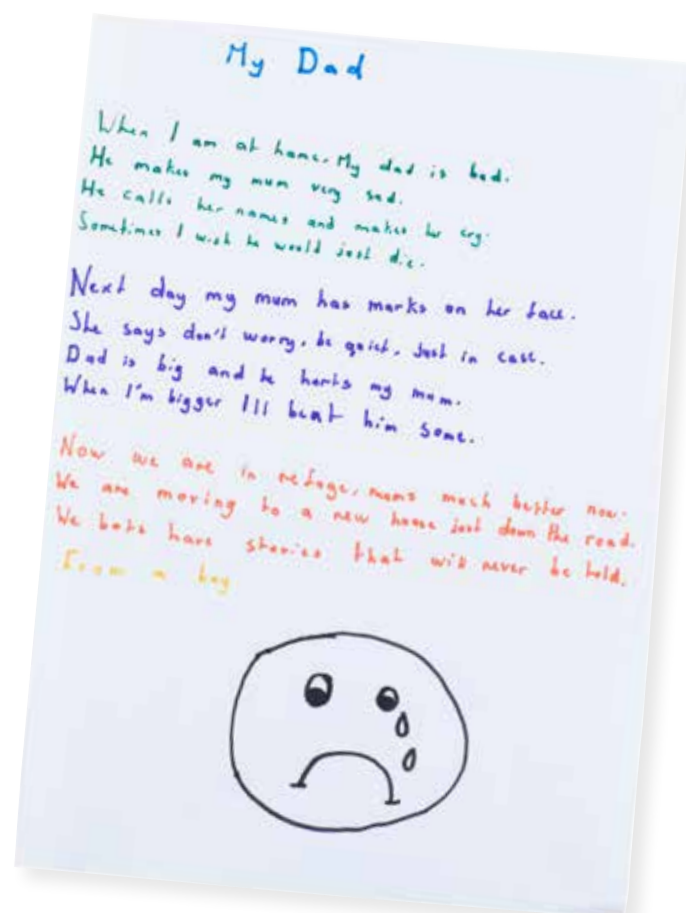 My Dad
When I am at home. My dad is bad.
He makes my mum very sad.
He calls her names and makes her cry.
Sometimes I wish he would just die.
Next day my mum has marks on her face.
She says don't worry, be quiet, just in case.
Dad is big and he hurts my mum.
When I'm bigger I'll beat him some.
Now we are in refuge, mums much better now.
We are moving to a new house just down the road.
We both have stories that will never be told.
From a boy